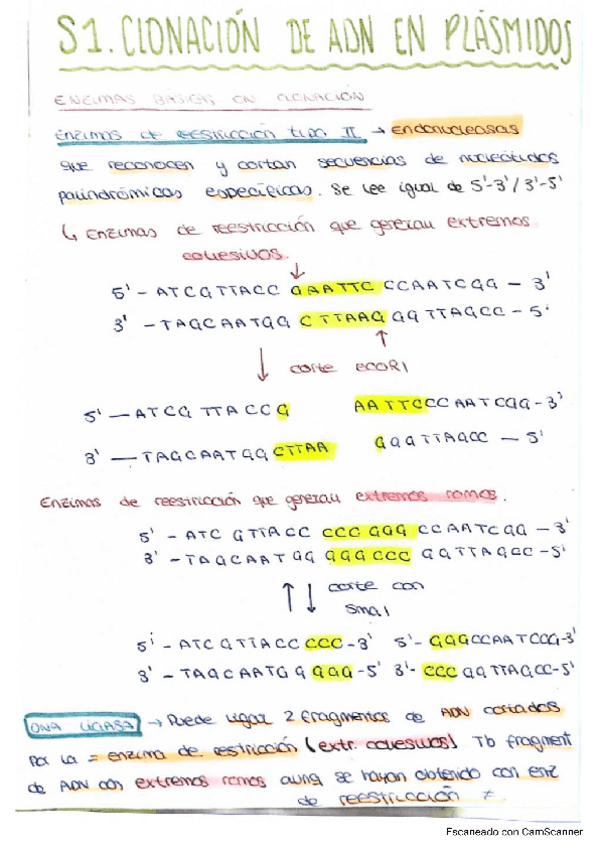 S1. CLONACIÓN DE ADN EN PLÁSMIDOS
ENZIMAS BÁSICAS EN CLONACIÓN
Enzimas de reestricción tipo II → Endonucleasas
que reconocen y cortan secuencias de nucleótidos
palindrómicas específicas. Se lee igual de 5'-3'/3'-5'
↳ Enzimas de reestricción que generan extremos
cohesivos.
5' - ATCGTTACC GAATTC CCAATCGG - 3'
3' - TAGCAATGG CTTAAG GGTTAGCC - 5'
corte ECORI
5' — ATCG TTACCG AATTCCCAATCGG - 3'
3' — TAGCAATGGCTTAA GGGTTAGCC - 5'
Enzimas de reestricción que generan extremos romos.
5' - ATC GTTACC CCC GGG CCAATCGG - 3'
3' - TAGCAATGG GGGCCC GGTTAGCC - 5'
corte con
SmaI
5' - ATCGTTACC CCC - 3' 5' - GGGCCAATCGG - 3'
3' - TAGCAATGG GGG - 5' 3' - CCC GGTTAGCC - 5'
DNA LIGASA → Puede ligar 2 fragmentos de ADN cortados
por la = enzima de restricción (extr. cohesivos) Tb fragment
de ADN con extremos romos aunq se hayan obtenido con enz
de reestricción ≠.
Escaneado con CamScanner